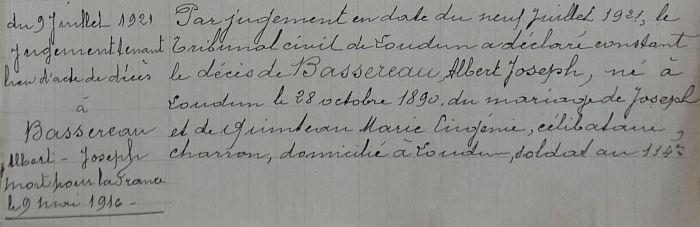 du 9 Juillet 1921
Jugement tenant
lieu d'acte de décès
à
Bassereau
Albert-Joseph
mort pour la France
le 9 mai 1916-
Par jugement en date du neuf Juillet 1921, le
Tribunal civil de Loudun a déclaré constant
le décès de Bassereau, Albert Joseph, né à
Loudun le 28 octobre 1890, du mariage de Joseph
et de Guinteau Marie Eugénie, célibataire,
charron, domicilié à Loudun, soldat au 114e